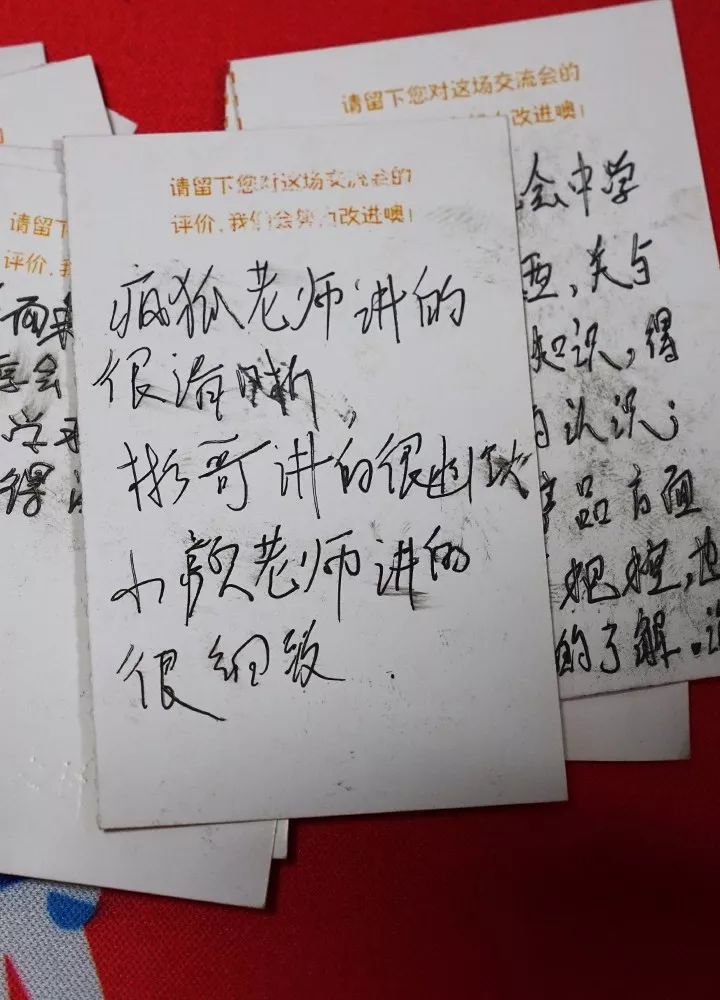 请留下您对这场交流会的
评价，我们会努力改进噢！
疯狐老师讲的
很清晰，
彬哥讲的很幽默
小颜老师讲的
很细致.
请留下您对这场交流会的
改进噢！
会中学
关与
知识，得
认识；
产品方面
把控，也
的了解.
请留下
评价，我
而来
享会
学习
得